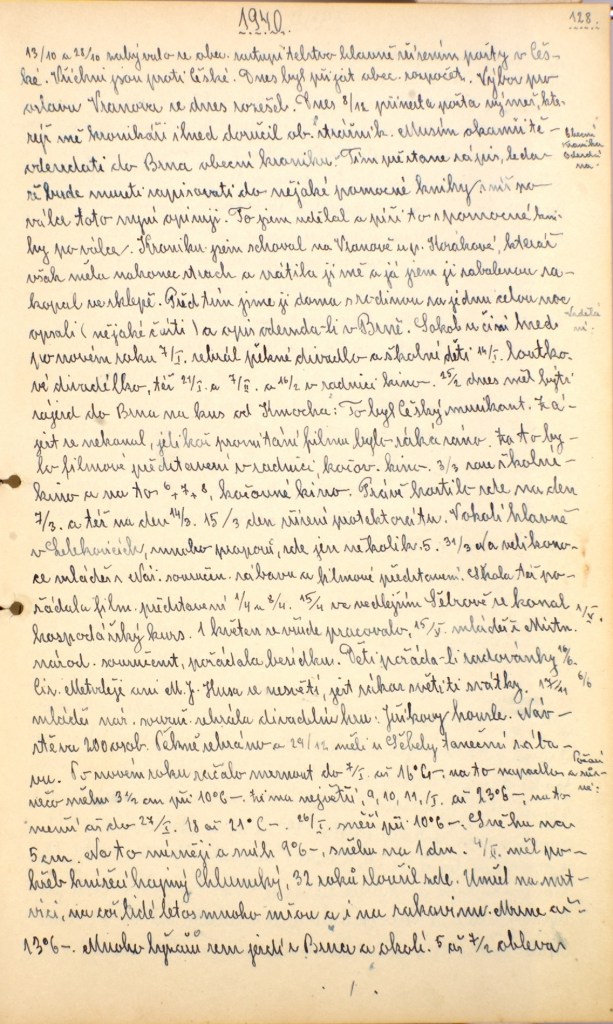 1940.
128.
13/10 a 28/10 zabývalo se obec. zastupitelstvo hlavně zřízením pošty v Čes-
ké. Všichni jsou proti České. Dnes byl přijat obec. rozpočet. Výbor pro
oslavu Vranova se dnes rozešel. Dnes 8/12 přinesla pošta výměř, kte-
rýž mě kronikáři ihned doručil ob. strážník. Musím okamžitě
odevzdati do Brna obecní kroniku. Tím přestane zápis, leda-
že bude museti zapisovati do nějaké pomocné knihy, a níž po
válce toto nyní opisuji. To jsem udělal a píši to s pomocné kni-
hy po válce. Kroniku jsem schoval na Vranově u p. Horákové, kteráž
však měla nakonec strach a vrátila ji mě a já jsem ji zabalenou za-
kopal ve sklepě. Před tím jsme ji doma s rodinou za jednu celou noc
opsali (nějaké části) a opis odevzda-li v Brně. Sokol učinil hned
po novém roku 7/I. sehrál pěkné divadlo a školní děti 14/I. loutko-
vé divadélko, též 21/I. a 7/II. a 16/2 v radnici kino. 25/2 dnes měl býti
zájezd do Brna na kus od Kmocha: To byl Český muzikant. Zá-
jezd se nekonal, jelikož promítání filmu bylo zakázáno. Za to by-
lo filmové představení v radnici, kočov. kino. 3/3 zase školní
kino a na to 6+7+8, kočovné kino. Právě hostilo zde na den
7/3. a též na den 14/3. 15/3 den zřízení protektorátu. V okolí hlavně
v Lelekovicích, mnoho praporů, zde jen několik. 5. 31/3 Na velikono-
ce mládež Nár. souručen. zábavu a filmové představení. Škola též po-
řádala film. představení 1/4 a 8/4. 15/4 ve vedlejším Šebrově se konal
hospodářský kurs. 1 květen se všude pracovalo, 15/V. mládež Místn.
národ. souručenst. pořádala besídku. Děti pořáda-li radovánky 16/6.
Cir. Metoděje ani M. J. Husa se nesvětí, jest zákaz světiti svátky. 17/11
mládež nár. souruč. sehrála divadelní hru: Jiříkovy housle. Náv-
štěva 200 osob. Pěkně sehráno a 29/12 měli u Sébely taneční zába-
vu. Po novém roku začalo mrznout do 7/I. až 16°C-, na to napadlo
něco sněhu 3½ cm při 10°C-. Zima největší, 9, 10, 11,/I. až 23°C-, na to
menší až do 27/I. 18 až 21°C-. 28/I. sněží při 10°C-. Sněhu na
5 cm. Na to mírněji a sníh 9°C-, sněhu na 1 dm. 4/II. měl po-
hřeb knížecí hajný Chlumský, 32 roků sloužil zde. Umřel na mrt-
vici, na což lidé letos mnoho mřou a i na rakovinu. Mrzne až
13°C-. Mnoho lyžařů sem jezdí z Brna a okolí. 5 až 7/2 obleva
Obecní
kronika
odevzdá-
na.
1/V.
6/6
Počasí